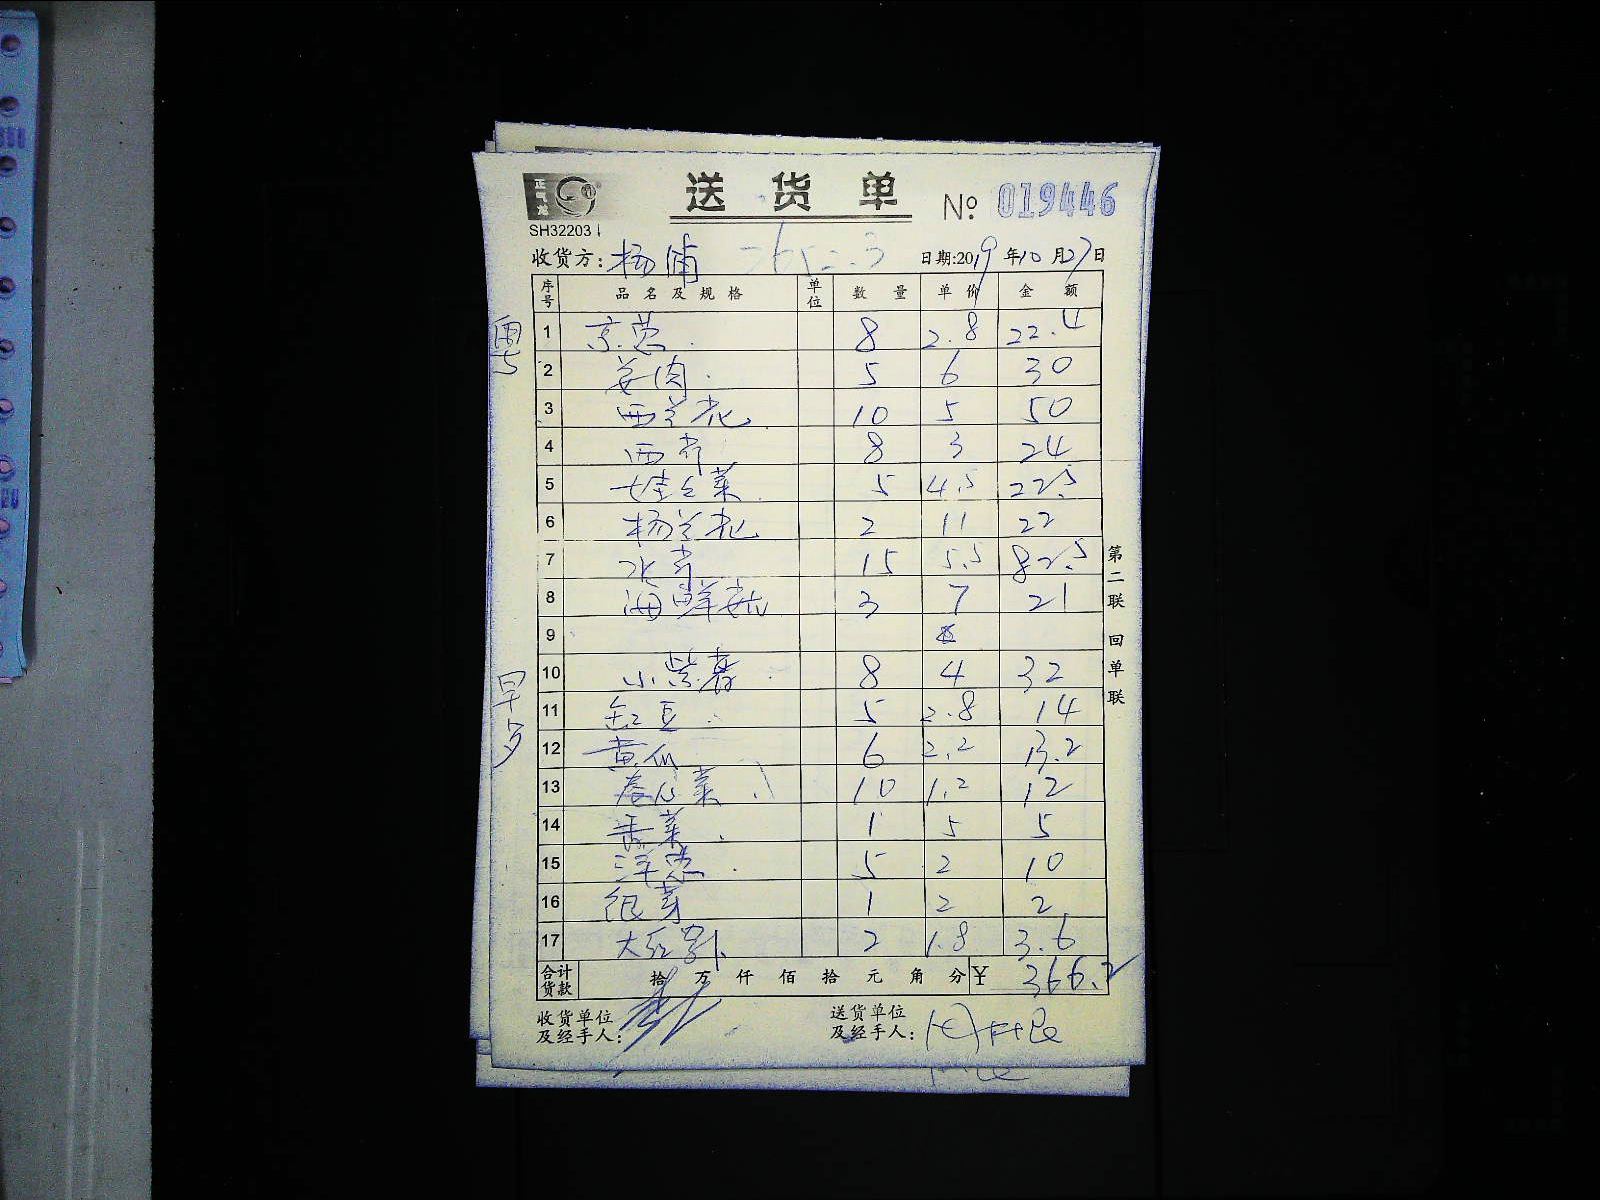 送货单 № 019446
SH32203
收货方：杨浦 日期:2019年10月27日
序号 品名及规格 单位 数量 单价 金额
1 京葱 8 2.8 22.4
2 姜肉 5 6 30
3 西兰花 10 5 50
4 西芹 8 3 24
5 娃娃菜 5 4.5 22.5
6 杨兰花 2 11 22
7 水芹 15 5.5 82.5
8 海鲜菇 3 7 21
9
10 小紫薯 8 4 32
11 豇豆 5 2.8 14
12 黄瓜 6 2.2 13.2
13 卷心菜 10 1.2 12
14 香菜 1 5 5
15 洋葱 5 2 10
16 银芽 1 2 2
17 大红萝卜 2 1.8 3.6
合计货款 拾 万 仟 佰 拾 元 角 分 ¥ 366.2
收货单位及经手人：
送货单位及经手人：
第二联 回单联